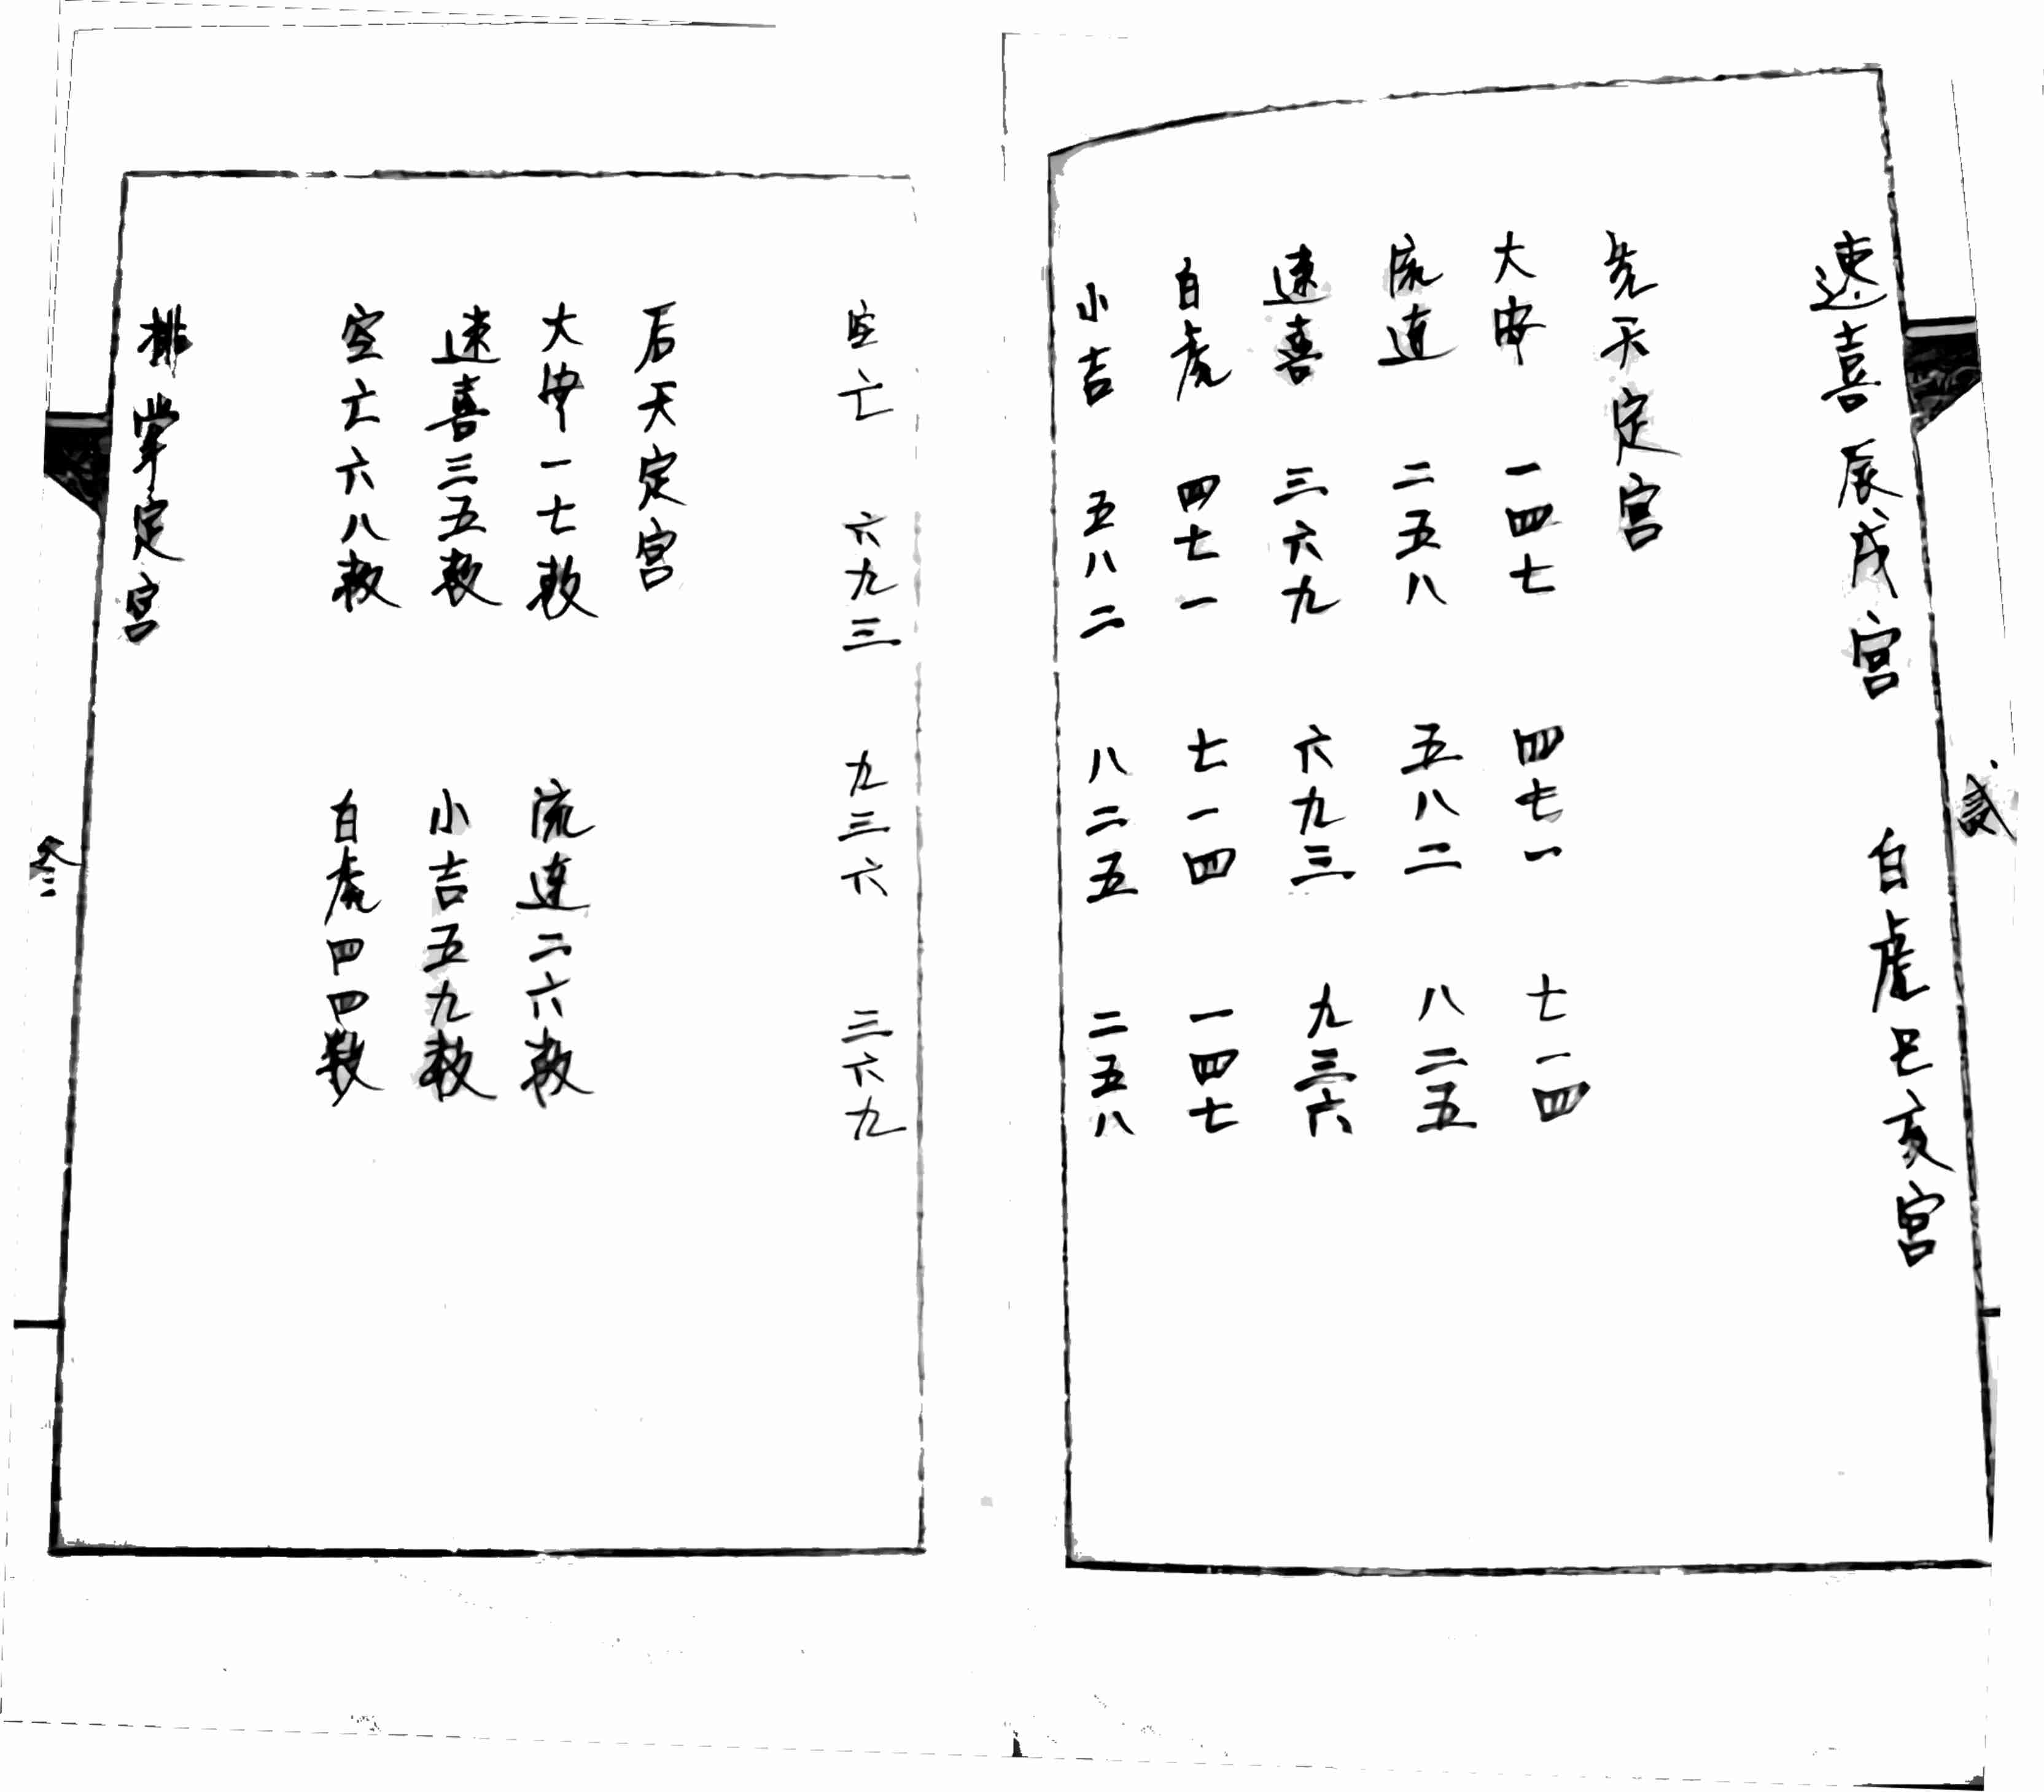 速喜辰戌宫 白虎巳亥宫
先天定宫
大安 一四七 四七一 七一四
流连 二五八 五八二 八二五
速喜 三六九 六九三 九三六
白虎 四七一 七一四 一四七
小吉 五八二 八二五 二五八
贰
空亡 六九三 九三六 三六九
后天定宫
大安一七数 流连二六数
速喜三五数 小吉五九数
空亡六八数 白虎四四数
排掌定宫
叁